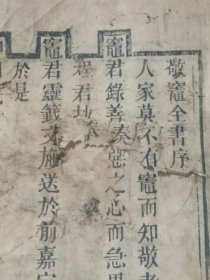 敬竈全書序
人家莫不有竈而知敬者
竈君錄善奏惡之心而急思
竈君
竈君靈籤文施送於前嘉定
於是